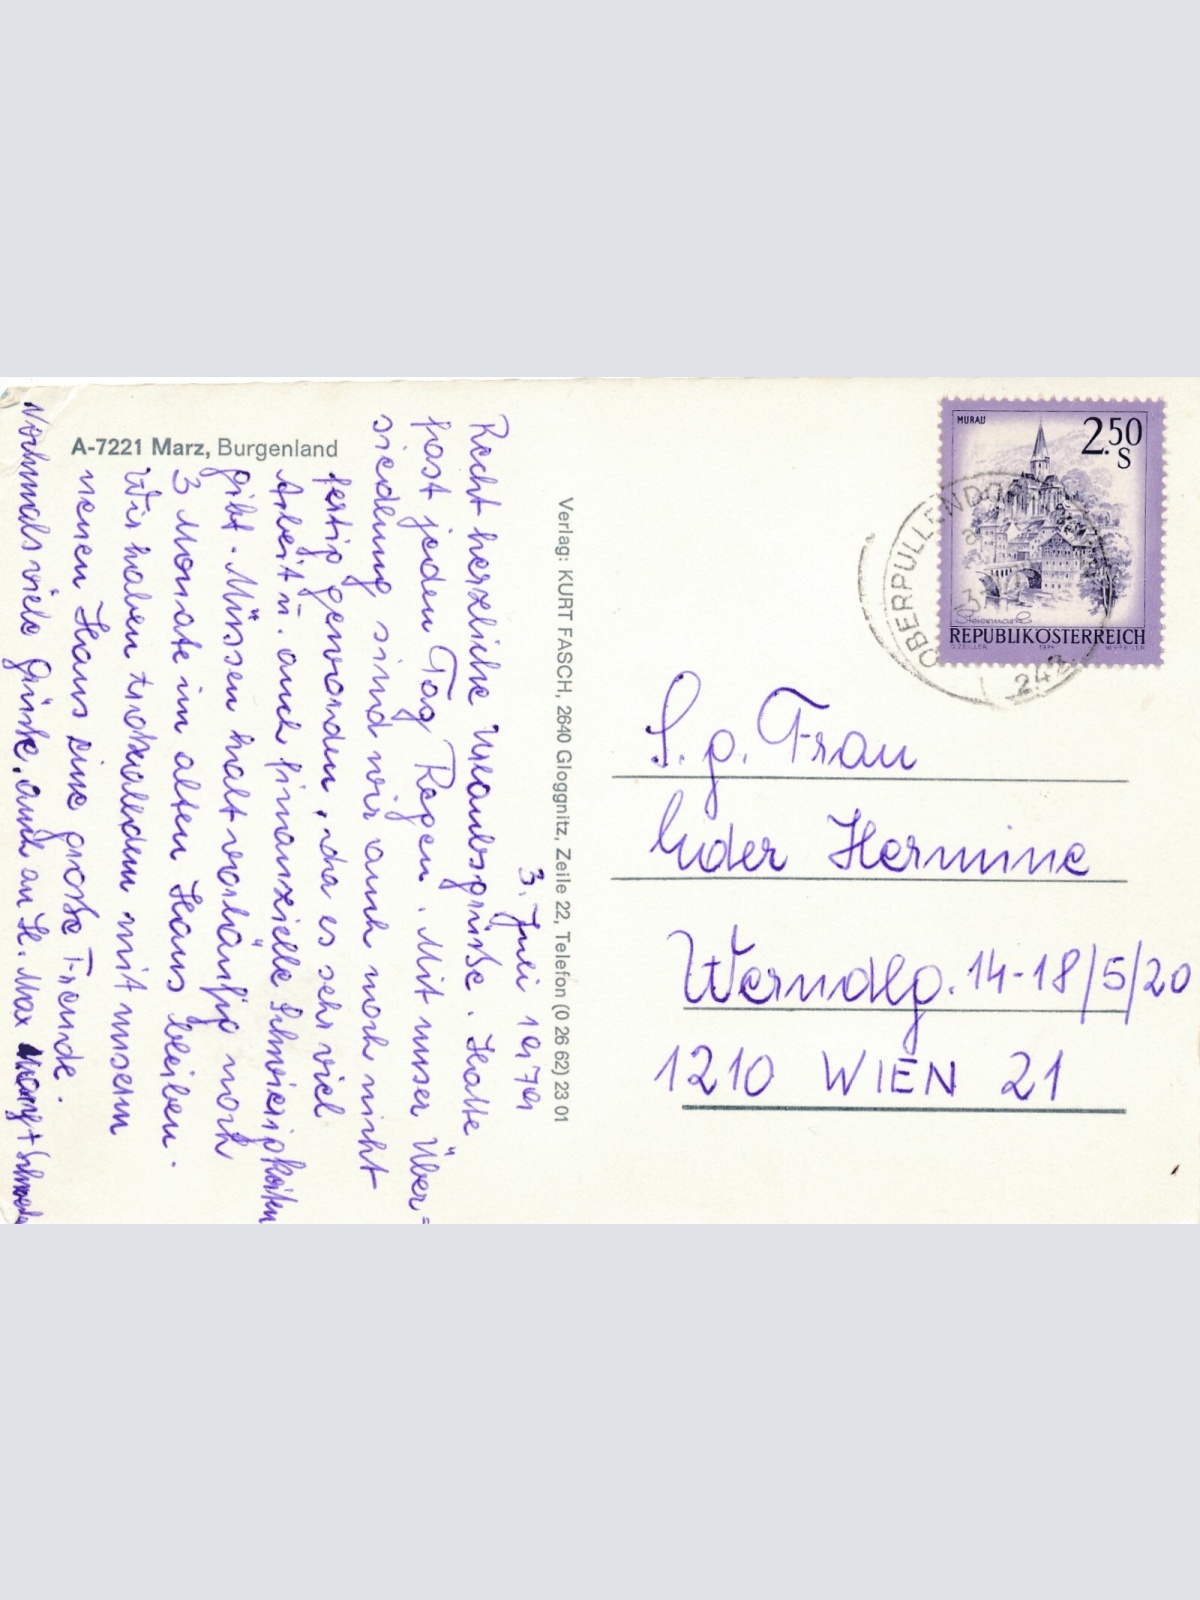 A-7221 Marz, Burgenland
3. Juli 1979
Recht herzliche Urlaubsgrüße. Hatte
fast jeden Tag Regen. Mit unser Über=
siedlung sind wir auch noch nicht
fertig geworden, da es sehr viel
Arbeit u. auch finanzielle Schwierigkeiten
gibt. Müssen halt vorläufig noch
3 Monate im alten Haus bleiben.
Wir haben trotzalledem mit unsern
neuen Haus eine große Freude.
Nochmals viele Grüße, auch an H. Max
Verlag: KURT FASCH, 2640 Gloggnitz, Zeile 22, Telefon (0 26 62) 23 01
MURAU
2.50
S
Steiermark
REPUBLIK ÖSTERREICH
O. ZEILLER 1974 W. PFEILER
OBERPULLENDO
S. g. Frau
Eder Hermine
Werndlg. 14-18/5/20
1210 WIEN 21